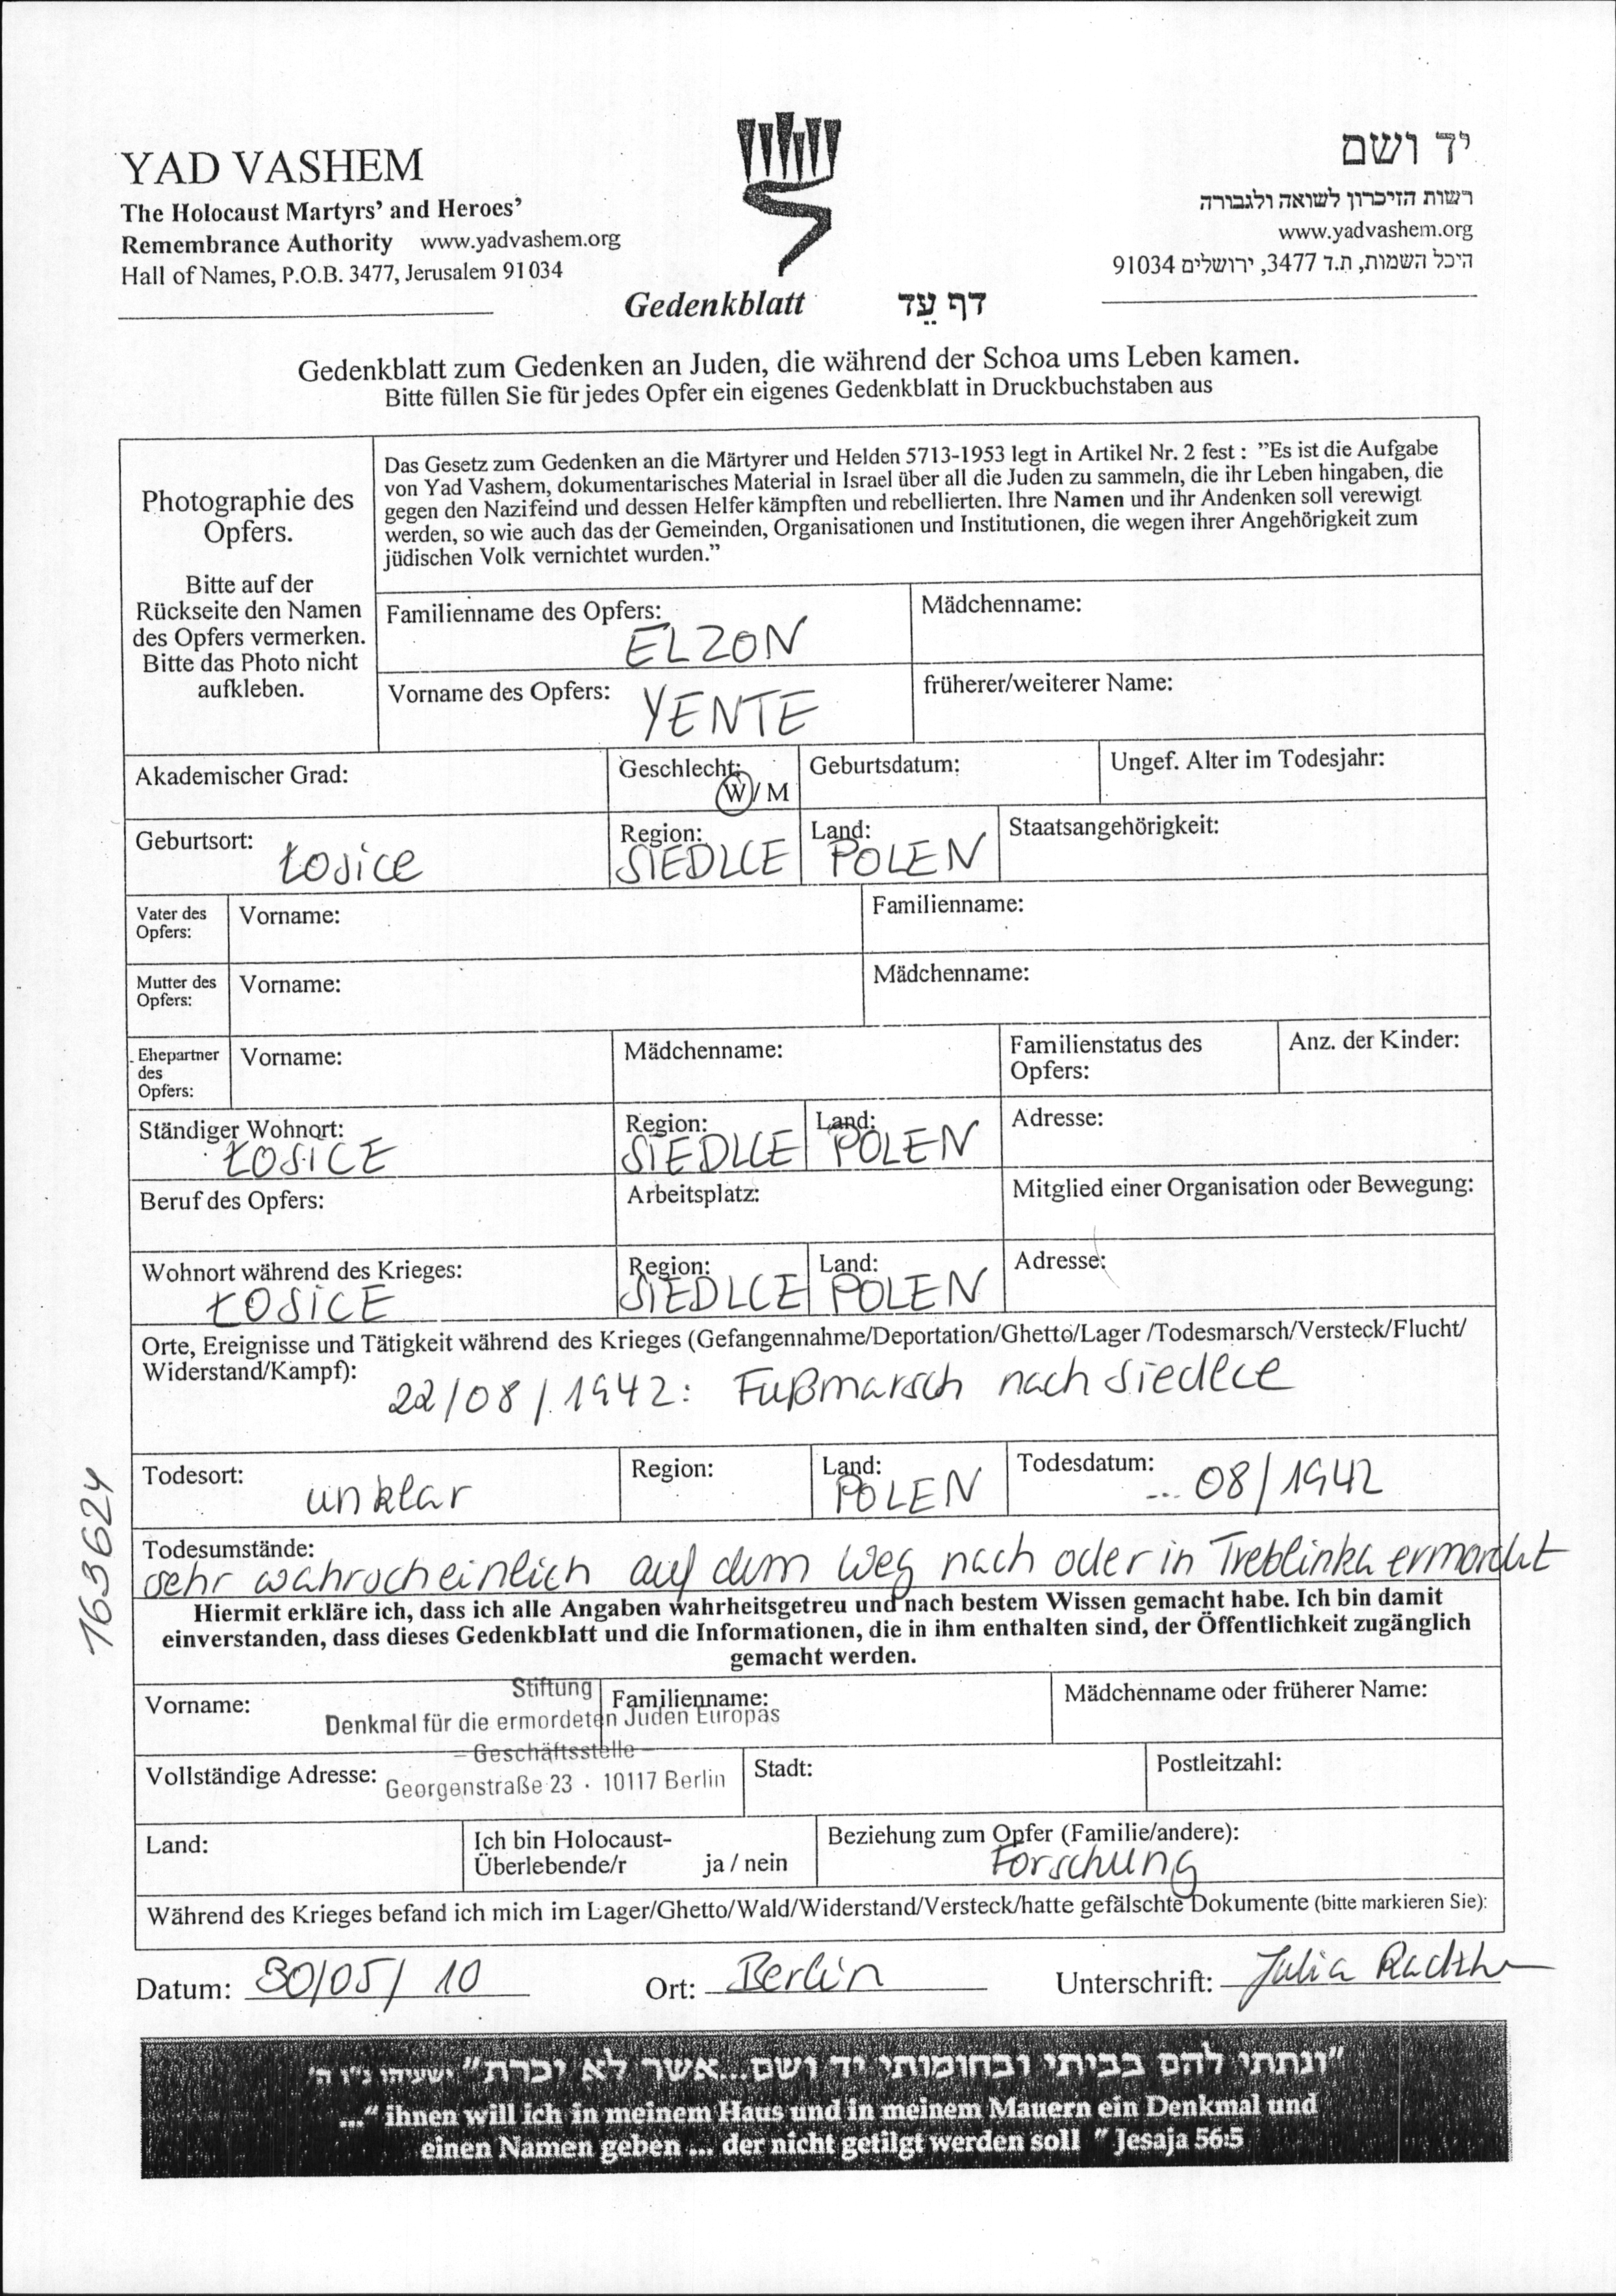 YAD VASHEM
The Holocaust Martyrs' and Heroes'
Remembrance Authority www.yadvashem.org
Hall of Names, P.O.B. 3477, Jerusalem 91034
יד ושם
רשות הזיכרון לשואה ולגבורה
www.yadvashem.org
היכל השמות, ת.ד 3477, ירושלים 91034
Gedenkblatt דף עֵד
Gedenkblatt zum Gedenken an Juden, die während der Schoa ums Leben kamen.
Bitte füllen Sie für jedes Opfer ein eigenes Gedenkblatt in Druckbuchstaben aus
Photographie des
Opfers.
Bitte auf der
Rückseite den Namen
des Opfers vermerken.
Bitte das Photo nicht
aufkleben.
Das Gesetz zum Gedenken an die Märtyrer und Helden 5713-1953 legt in Artikel Nr. 2 fest : "Es ist die Aufgabe
von Yad Vashem, dokumentarisches Material in Israel über all die Juden zu sammeln, die ihr Leben hingaben, die
gegen den Nazifeind und dessen Helfer kämpften und rebellierten. Ihre Namen und ihr Andenken soll verewigt
werden, so wie auch das der Gemeinden, Organisationen und Institutionen, die wegen ihrer Angehörigkeit zum
jüdischen Volk vernichtet wurden."
Familienname des Opfers: ELZON
Mädchenname:
Vorname des Opfers: YENTE
früherer/weiterer Name:
Akademischer Grad:
Geschlecht: W / M
Geburtsdatum:
Ungef. Alter im Todesjahr:
Geburtsort: Łosice
Region: SIEDLCE
Land: POLEN
Staatsangehörigkeit:
Vater des
Opfers:
Vorname:
Familienname:
Mutter des
Opfers:
Vorname:
Mädchenname:
Ehepartner
des
Opfers:
Vorname:
Mädchenname:
Familienstatus des
Opfers:
Anz. der Kinder:
Ständiger Wohnort: ŁOSICE
Region: SIEDLCE
Land: POLEN
Adresse:
Beruf des Opfers:
Arbeitsplatz:
Mitglied einer Organisation oder Bewegung:
Wohnort während des Krieges: ŁOSICE
Region: SIEDLCE
Land: POLEN
Adresse:
Orte, Ereignisse und Tätigkeit während des Krieges (Gefangennahme/Deportation/Ghetto/Lager /Todesmarsch/Versteck/Flucht/
Widerstand/Kampf):
22/08/1942: Fußmarsch nach Siedlce
Todesort: unklar
Region:
Land: POLEN
Todesdatum: ... 08/1942
Todesumstände:
sehr wahrscheinlich auf dem Weg nach oder in Treblinka ermordet
Hiermit erkläre ich, dass ich alle Angaben wahrheitsgetreu und nach bestem Wissen gemacht habe. Ich bin damit
einverstanden, dass dieses Gedenkblatt und die Informationen, die in ihm enthalten sind, der Öffentlichkeit zugänglich
gemacht werden.
Vorname:
Familienname:
Mädchenname oder früherer Name:
Stiftung
Denkmal für die ermordeten Juden Europas
- Geschäftsstelle -
Georgenstraße 23 · 10117 Berlin
Vollständige Adresse:
Stadt:
Postleitzahl:
Land:
Ich bin Holocaust-
Überlebende/r ja / nein
Beziehung zum Opfer (Familie/andere):
Forschung
Während des Krieges befand ich mich im Lager/Ghetto/Wald/Widerstand/Versteck/hatte gefälschte Dokumente (bitte markieren Sie):
Datum: 30/05/10 Ort: Berlin Unterschrift: Julia
163624
"ונתתי להם בביתי ובחומותי יד ושם...אשר לא יכרת" ישעיהו נ"ו ה'
..." ihnen will ich in meinem Haus und in meinem Mauern ein Denkmal und
einen Namen geben ... der nicht getilgt werden soll " Jesaja 56:5